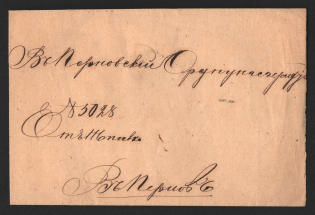 Въ Перновскій Орднунгсгерихтъ
№ 5028
Въ Перновъ